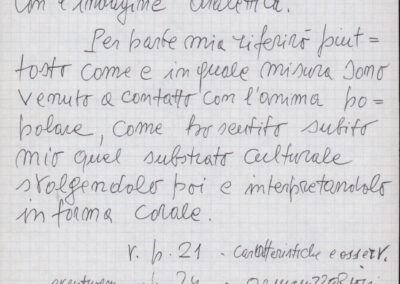 con l'indagine dialettica.
Per parte mia riferirò piut=
tosto come e in quale misura sono
venuto a contatto con l'anima po=
polare, come ho sentito subito
mio quel substrato culturale
svolgendolo poi e interpretandolo
in forma corale.
v. p. 21 - caratteristiche e osserv.
p. 24 - armonizzazioni